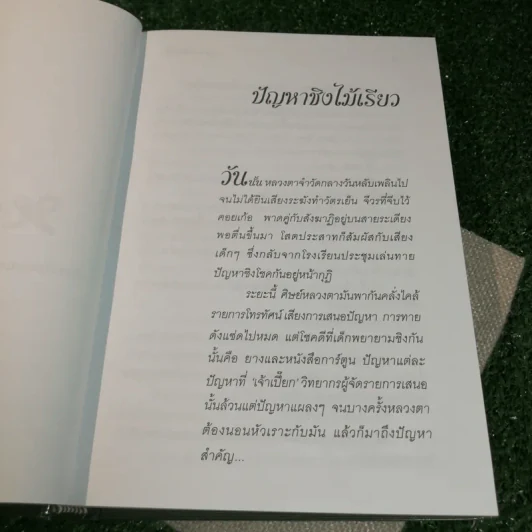 ปัญหาชิงไม้เรียว
วันนั้น หลวงตาจำวัดกลางวันหลับเพลินไป
จนไม่ได้ยินเสียงระฆังทำวัตรเย็น จีวรที่จีบไว้
คอยเก้อ พาดคู่กับสังฆาฏิอยู่บนสายระเดียง
พอตื่นขึ้นมา โสตประสาทก็สัมผัสกับเสียง
เด็กๆ ซึ่งกลับจากโรงเรียนประชุมเล่นทาย
ปัญหาชิงโชคกันอยู่หน้ากุฏิ
ระยะนี้ ศิษย์หลวงตามันพากันคลั่งไคล้
รายการโทรทัศน์ เสียงการเสนอปัญหา การทาย
ดังแซ่ดไปหมด แต่โชคดีที่เด็กพยายามชิงกัน
นั้นคือ ยางและหนังสือการ์ตูน ปัญหาแต่ละ
ปัญหาที่ 'เจ้าเปี๊ยก' วิทยากรผู้จัดรายการเสนอ
นั้นล้วนแต่ปัญหาแผลงๆ จนบางครั้งหลวงตา
ต้องนอนหัวเราะกับมัน แล้วก็มาถึงปัญหา
สำคัญ...